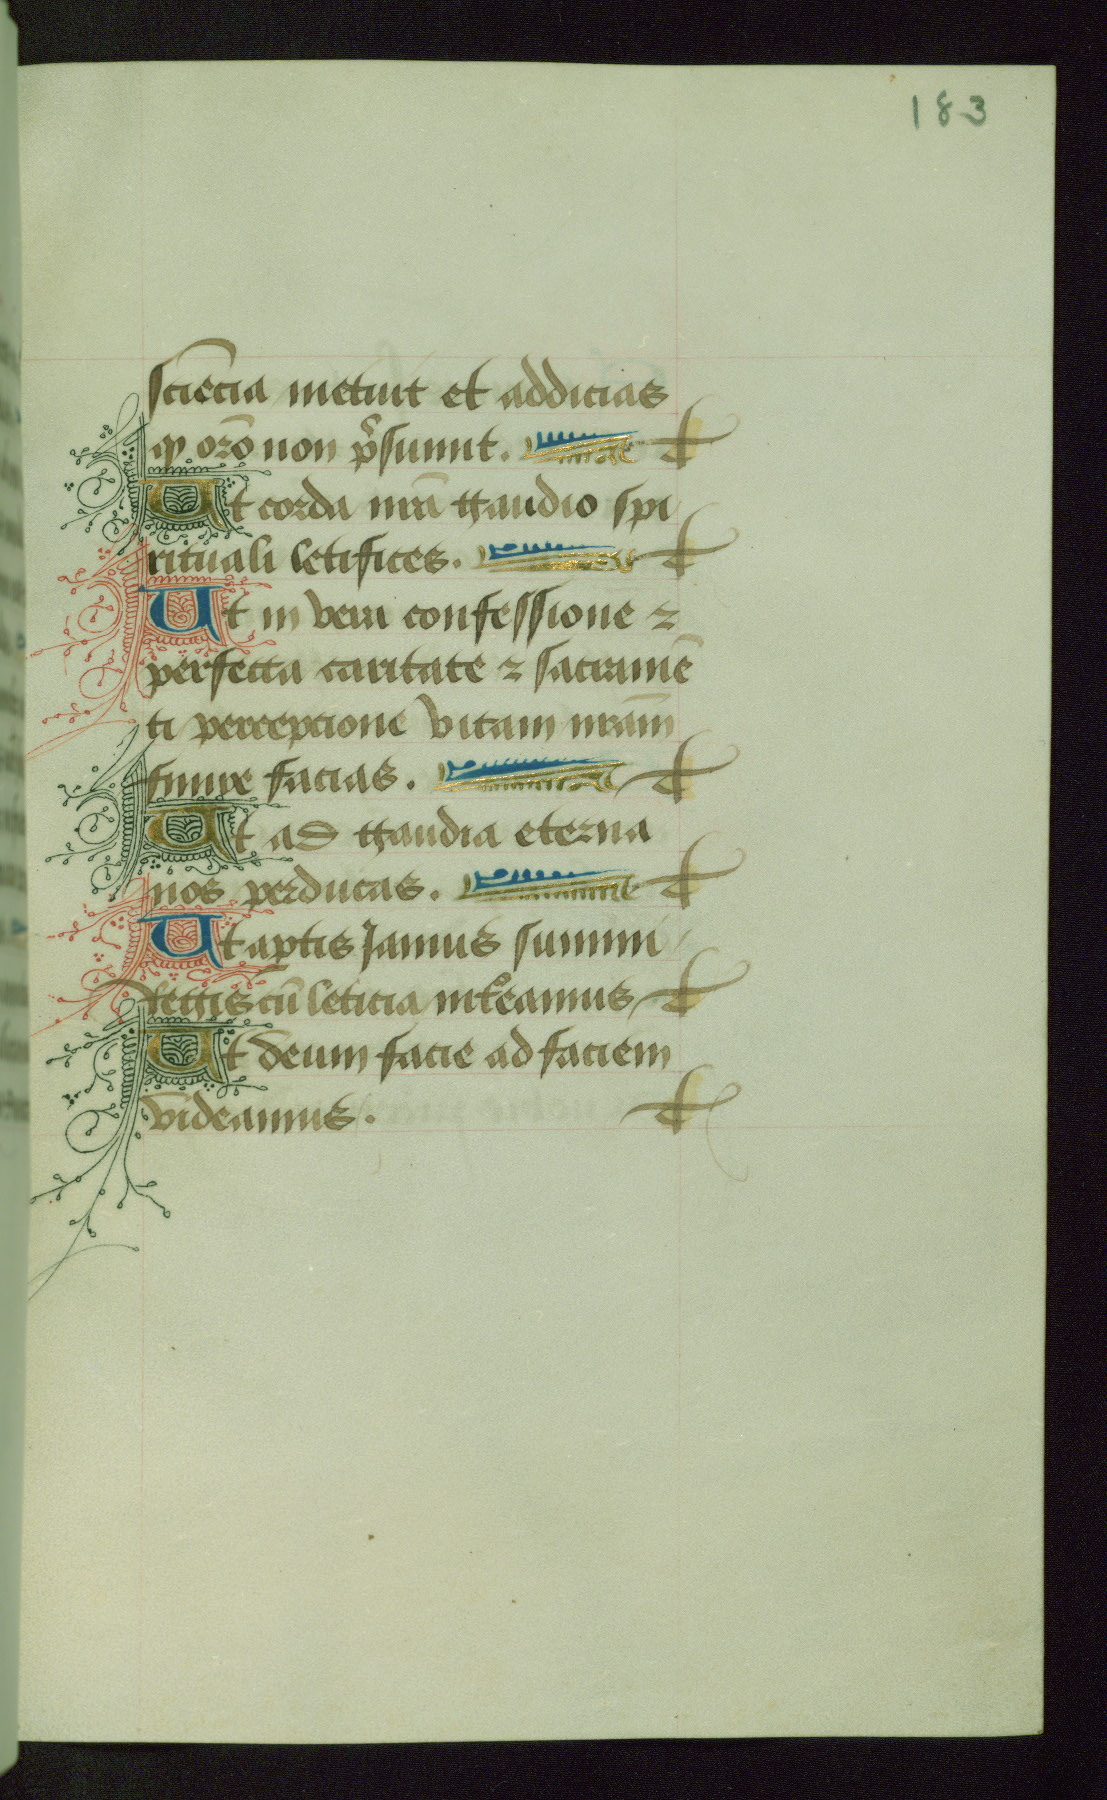 183
sciēcia metuit et addicias
q̄ orō non p̄sumit.
Ut corda nrā gaudio spi
rituali letifices.
Ut in vera confessione ⁊
perfecta caritate ⁊ sacramē
ti perceptione vitam nrām
finire facias.
Ut ad gaudia eterna
nos perducas.
Ut aptis Ianuis summi
Regis cū leticia intˀeamus
Ut deum facie ad faciem
videamus.